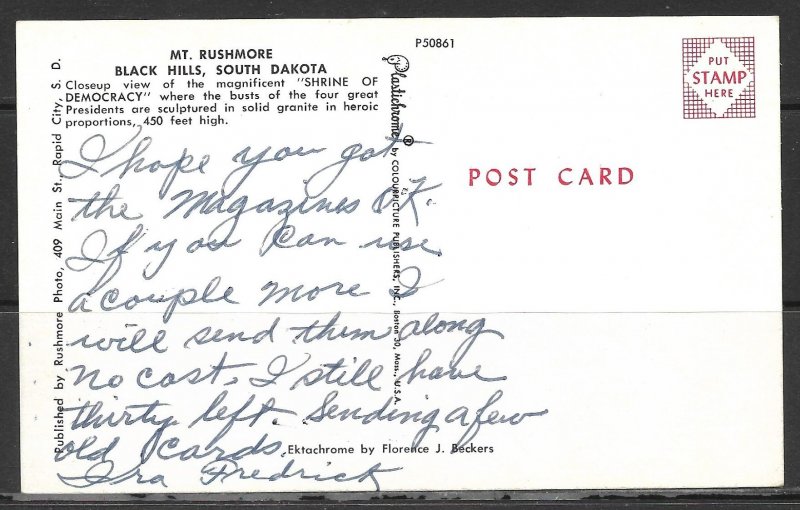 P50861
MT. RUSHMORE
BLACK HILLS, SOUTH DAKOTA
Closeup view of the magnificent "SHRINE OF
DEMOCRACY" where the busts of the four great
Presidents are sculptured in solid granite in heroic
proportions, 450 feet high.
Published by Rushmore Photo, 409 Main St., Rapid City, S. D.
Plastichrome ® by COLOURPICTURE PUBLISHERS, INC., Boston 30, Mass., U.S.A.
PUT
STAMP
HERE
POST CARD
I hope you got
the Magazines OK.
If you can use
a couple more I
will send them along
No cost. I still have
thirty left. Sending a few
old cards.
Ira Fredrick
Ektachrome by Florence J. Beckers